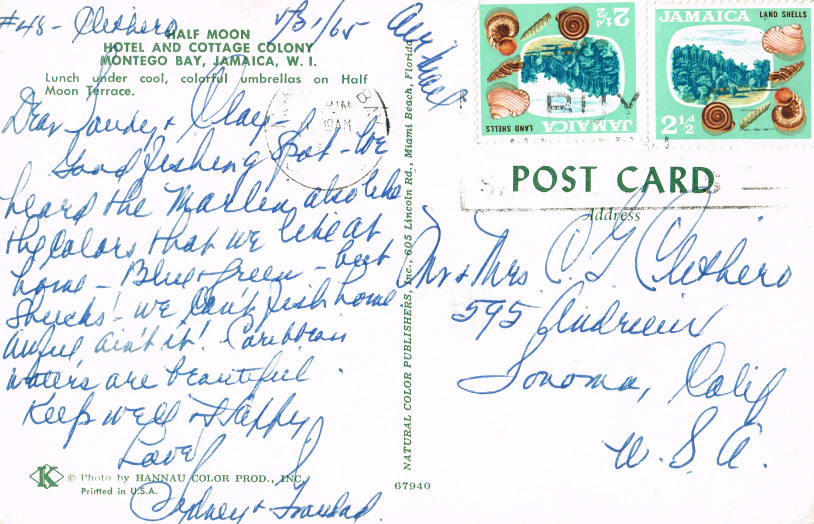 #48- Clethero 5/31/65 Air Mail
HALF MOON
HOTEL AND COTTAGE COLONY
MONTEGO BAY, JAMAICA, W. I.
Lunch under cool, colorful umbrellas on Half
Moon Terrace.
Dear Sandy & Clay - We
Good fishing spot - We
heard the Marlin also like
the colors that we like at
home - Blue & green - but
Shucks! we can't fish home
Awful ain't it! Caribbean
waters are beautiful.
Keep well & Happy
Love
Sydney &
K © Photo by HANNAU COLOR PROD., INC.
Printed in U.S.A.
NATURAL COLOR PUBLISHERS, Inc., 605 Lincoln Rd., Miami Beach, Florida
67940
JAMAICA
LAND SHELLS
2½d
JAMAICA
LAND SHELLS
2½d
BUY
POST CARD
Address
Mr & Mrs. C. G. Clethero
595 Andrieux
Sonoma, Calif
U. S. A.